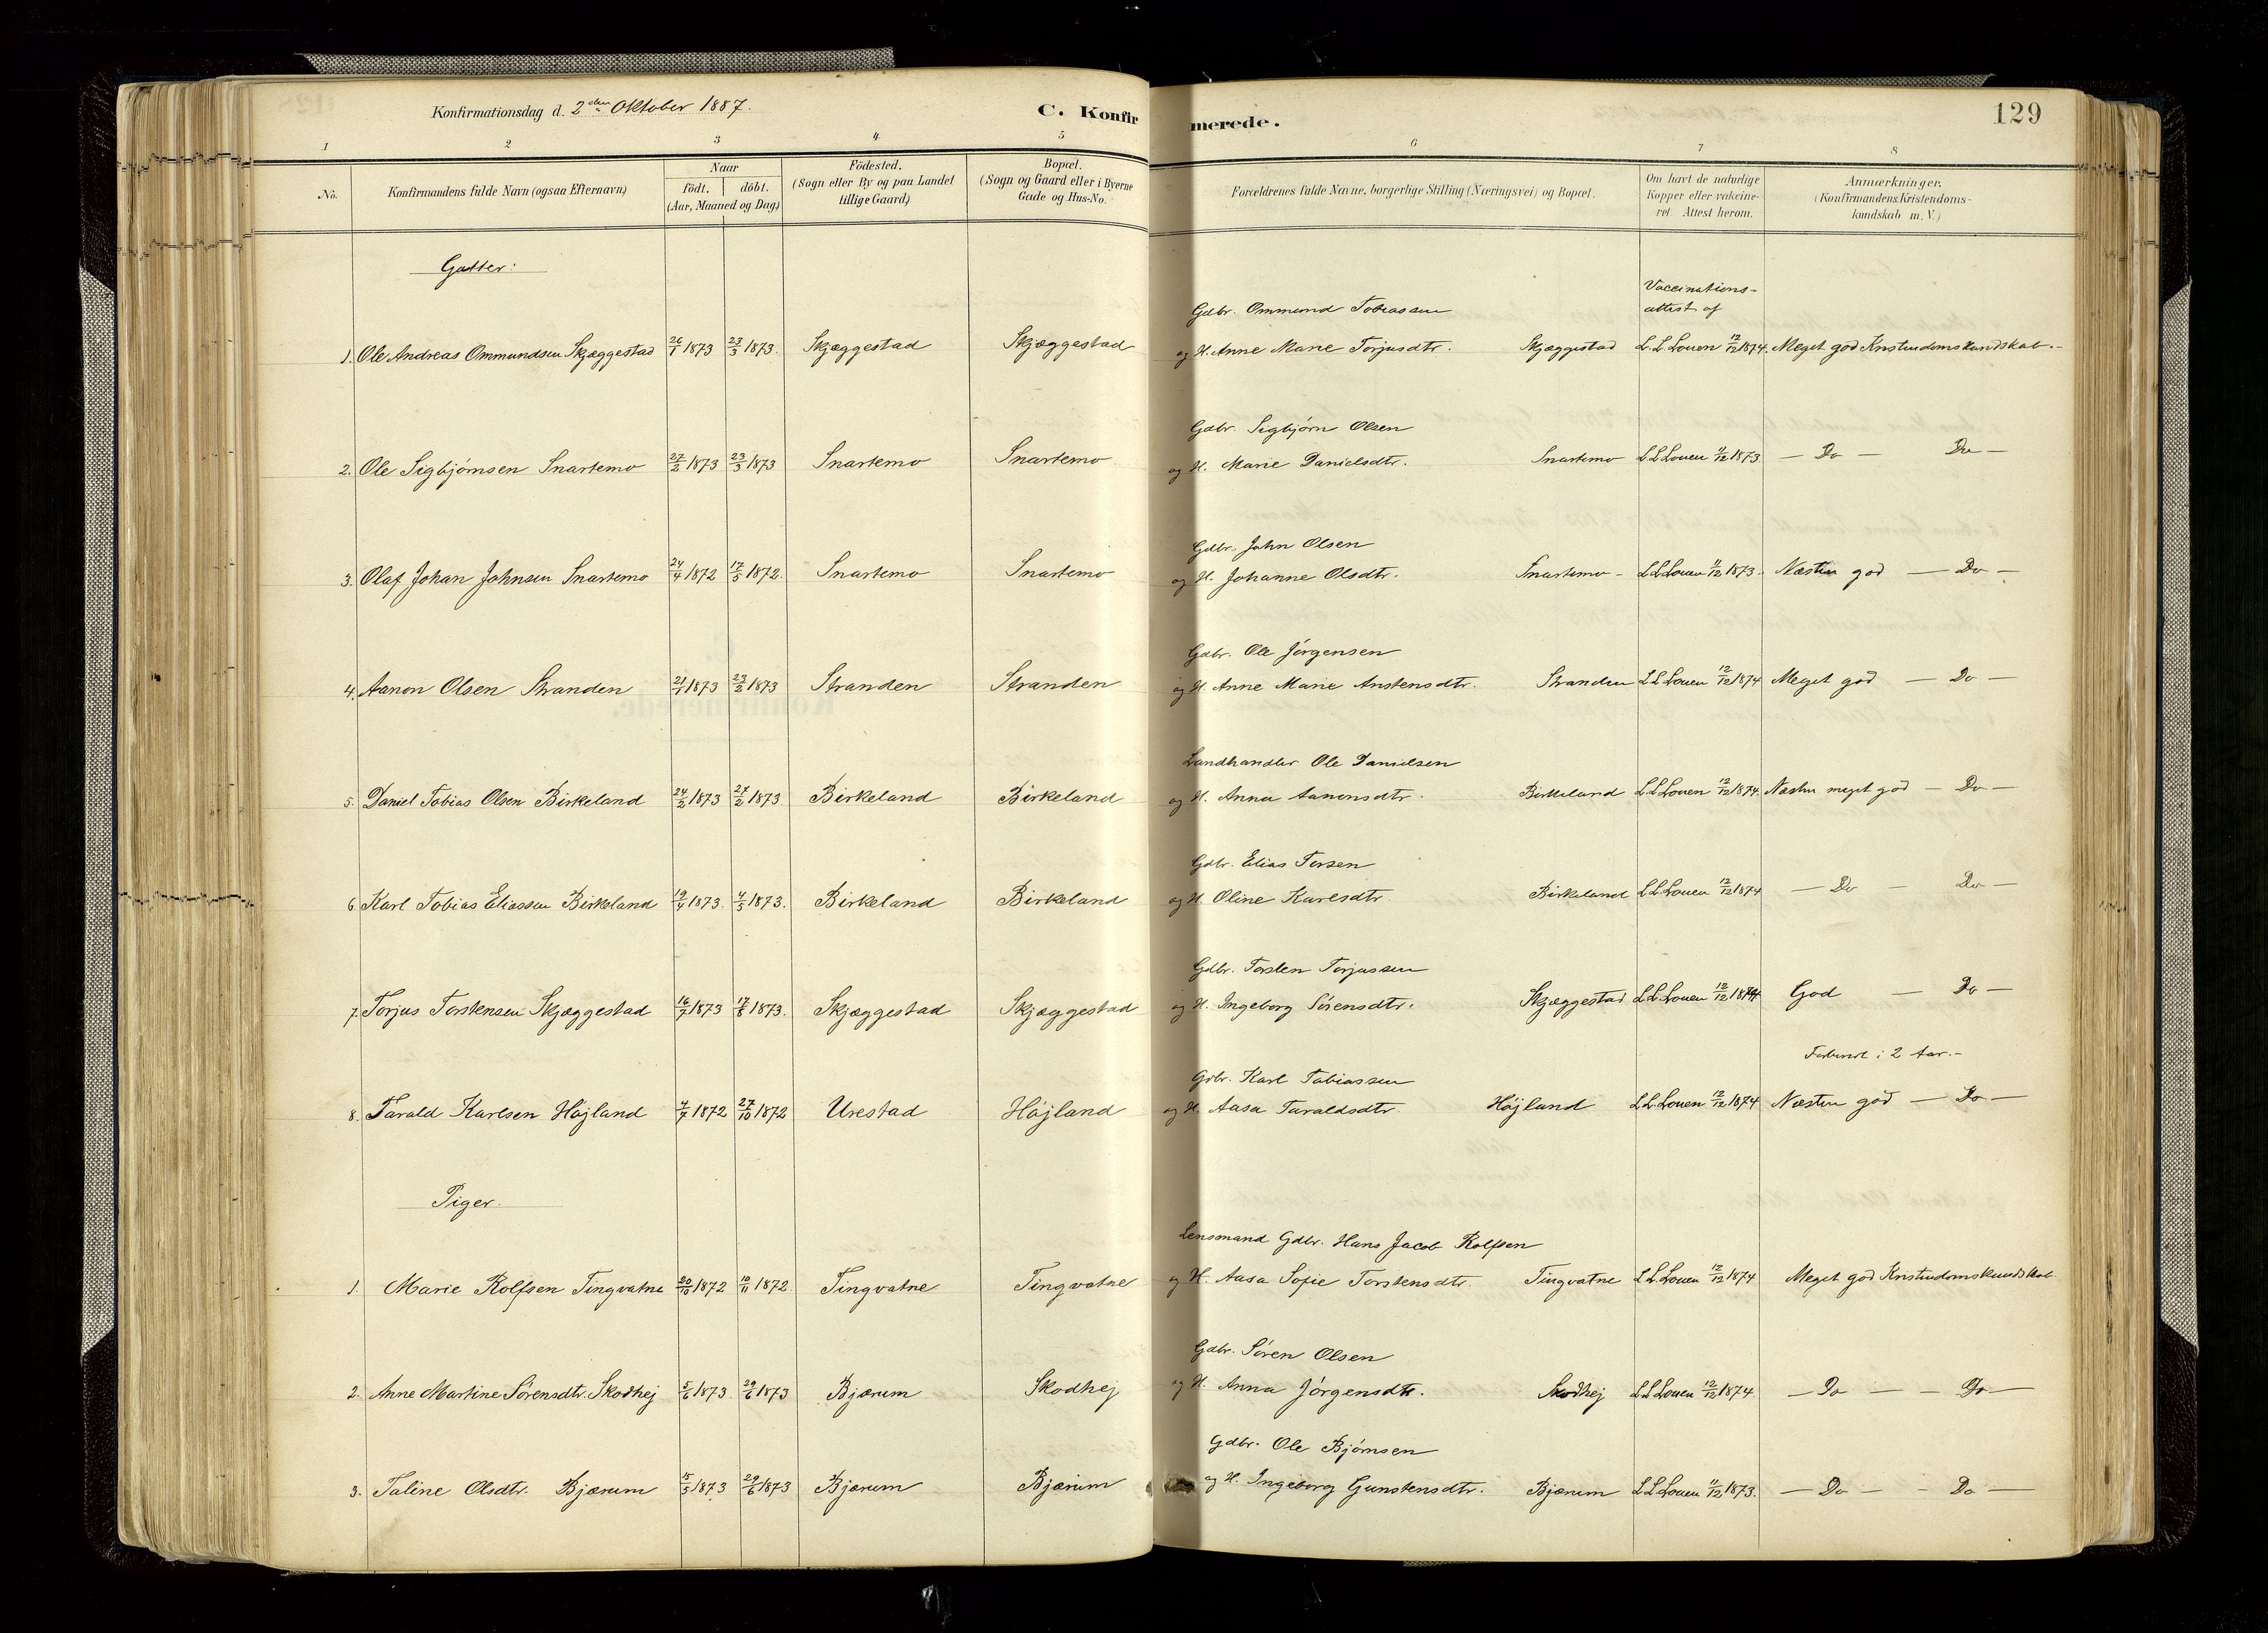 Konfirmationsdag d. 2den Oktober 1887.
C. Konfirmerede.
129
1 2 3 4 5 6 7 8
No.
Konfirmandens fulde Navn (ogsaa Efternavn)
Naar
födt. döbt.
(Aar, Maaned og Dag)
Födested.
(Sogn eller By og paa Landet
tillige Gaard)
Bopæl.
(Sogn og Gaard eller i Byerne
Gade og Hus-No.
Forældrenes fulde Navne, borgerlige Stilling (Næringsvei) og Bopæl.
Om havt de naturlige
Kopper eller vakcine-
ret. Attest herom.
Anmærkninger.
(Konfirmandens Kristendoms-
kundskab m. V.)
Gutter:
Gdbr. Ommund Tobiassen
Vaccinations-
attest af
1. Ole Andreas Ommundsen Skjæggestad 26/1 1873 23/3 1873. Skjæggestad Skjæggestad og H. Anne Marie Torjusdtr. Skjæggestad L. L. Louen 12/12 1874. Meget god Kristendomskundskab.-
Gdbr. Sigbjörn Olsen
2. Ole Sigbjörnsen Snartemo 27/2 1873 23/3 1873 Snartemo Snartemo og H. Marie Danielsdtr. Snartemo L L Louen 11/12 1873 — Do — Do —
Gdbr. John Olsen
3. Olaf Johan Johnsen Snartemo 24/4 1872 17/5 1872. Snartemo Snartemo og H. Johanne Olsdtr. Snartemo - L L Louen 11/12 1873. Næsten god — Do —
Gdbr. Ole Jörgensen
4. Aanon Olsen Stranden 21/1 1873 23/2 1873 Stranden Stranden og H. Anne Marie Anstensdtr. Stranden L L Louen 12/12 1874 Meget god — Do —
Landhandler Ole Danielsen
5. Daniel Tobias Olsen Birkeland 24/2 1873 27/2 1873 Birkeland Birkeland og H. Anna Aanonsdtr. Birkeland L L Louen 12/12 1874. Næsten meget god — Do —
Gdbr. Elias Torsen
6. Karl Tobias Eliassen Birkeland 19/4 1873. 4/5 1873. Birkeland Birkeland og H. Oline Karlsdtr. Birkeland L L Louen 12/12 1874 — Do — Do —
Gdbr. Torsten Torjussen
7. Torjus Torstensen Skjæggestad 16/7 1873 17/8 1873. Skjæggestad Skjæggestad og H. Ingeborg Sörensdtr. Skjæggestad L L Louen 12/12 1874 God — Do —
Gdbr. Karl Tobiassen
i 2 Aar.-
8. Tarald Karlsen Höjland 4/7 1872 27/10 1872 Urestad Höjland og H. Aasa Taraldsdtr. Höjland L L. Louen 12/12 1874 Næsten god — Do —
Piger.
Lensmand Gdbr. Hans Jacob Rolfsen
1. Marie Rolfsen Tingvatne 20/10 1872 10/11 1872 Tingvatne Tingvatne og H. Aasa Sofie Torstensdtr. Tingvatne L L Louen 12/12 1874 Meget god Kristendomskundskab
Gdbr. Sören Olsen
2. Anne Martine Sörensdtr. Skodhej 5/6 1873. 29/6 1873 Bjærum Skodhej og H. Anna Jörgensdtr. Skodhej L L Louen 12/12 1874. — Do — — Do —
Gdbr. Ole Bjørnsen
3. Taline Olsdtr. Bjærum 15/5 1873 29/6 1873 Bjærum Bjærum og H. Ingeborg Gunstensdtr. Bjærum L L Louen 11/12 1873. — Do — — Do —